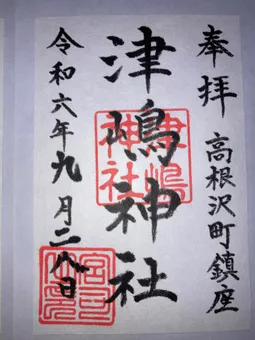 奉拝
高根沢町鎮座
津嶋神社
津嶋神社
令和六年九月二八日